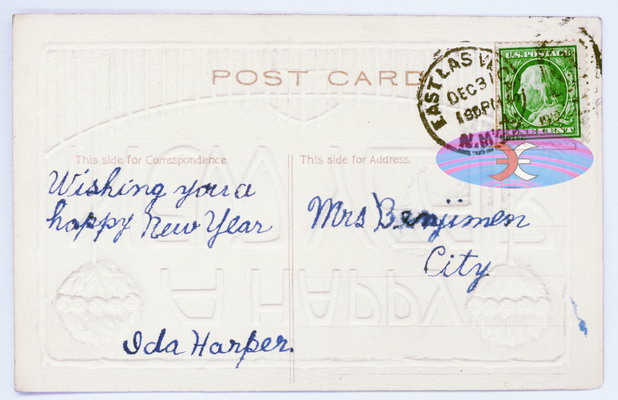 POST CARD
U.S. POSTAGE
ONE CENT
EAST LAS
DEC 31
N.M.
This side for Correspondence.
This side for Address.
Wishing you a
happy New Year
Mrs Benjimen
City
Ida Harper.
A HAPPY
NEW YEAR